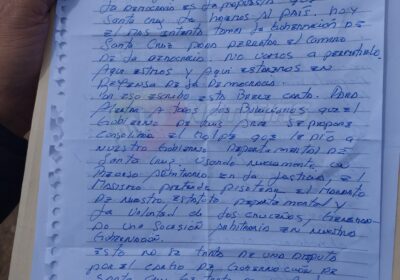 La democracia es de
Santa Cruz la hagamos al país. hoy
el MAS intenta toma la Gobernación de
Santa Cruz para
de la democracia. No vamos a permitirlo.
Aquí estamos y Aquí estaremos en
defensa de la democracia.
En ese sentido esta Breve carta. Para
a todos los Bolivianos que el
Gobierno de Luis Arce se propone
consolidar el Golpe que le dio a
nuestro Gobierno Departamental de
Santa Cruz. Usando nuevamente un
arbitrario en la Justicia, el
Masismo pretende pisotear el mandato
de nuestro Estatuto Departamental y
la voluntad de los cruceños,
do una sucesión arbitraria en nuestro
Gobernador.
Esto no se trata de una disputa
por el cargo de Gobernación de
Santa Cruz